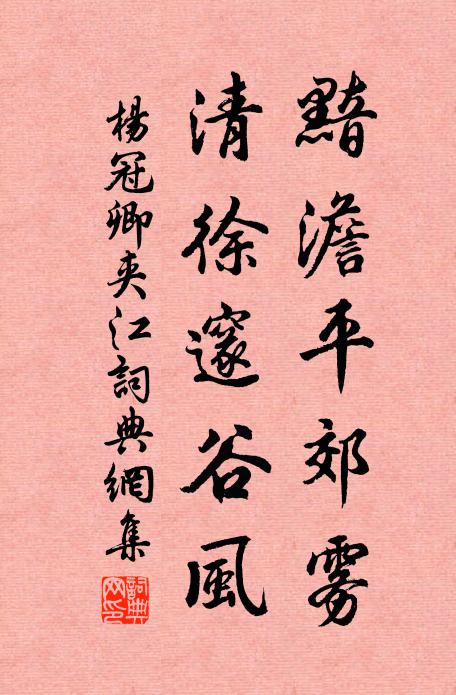 黯澹平郊雾
清徐邃谷風
楊冠卿夾江詞典網集
詞典網印